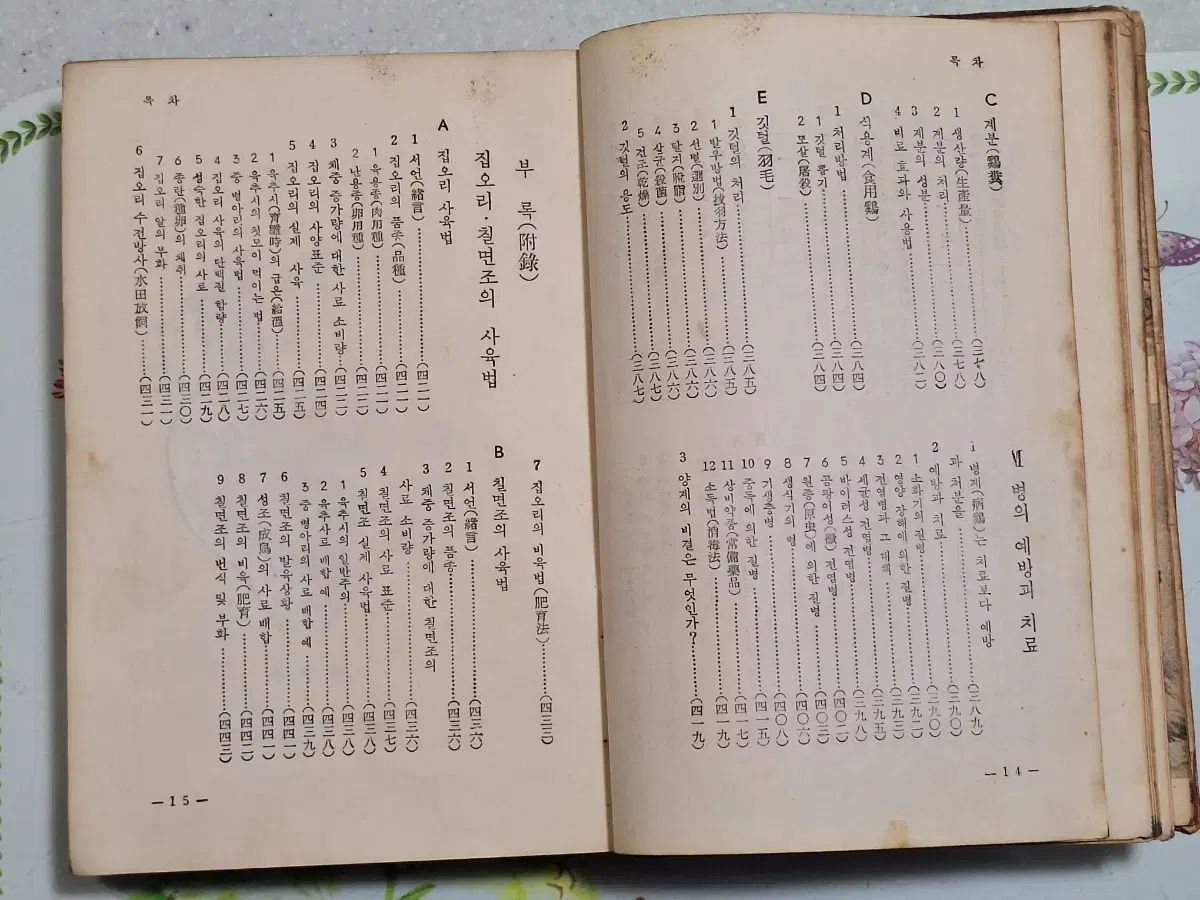 목 차
C 계분(鷄糞)
1 생산량(生産量)……(三七八)
2 계분의 처리……(三七八)
3 계분의 성분……(三八〇)
4 비료 효과와 사용법……(三八二)
D 식용계(食用鷄)
1 처리방법……(三八四)
1 깃털 뽑기……(三八四)
2 도살(屠殺)……(三八四)
E 깃털(羽毛)
1 깃털의 처리……(三八五)
1 발우방법(拔羽方法)……(三八五)
2 선별(選別)……(三八六)
3 탈지(脫脂)……(三八六)
4 살균(殺菌)……(三八六)
5 건조(乾燥)……(三八七)
2 깃털의 용도……(三八七)
Ⅶ 병의 예방과 치료
1 병계(病鷄)는 치료보다 예방
과 처분을……(三八九)
2 예방과 치료……(三九〇)
1 소화기의 질병……(三九〇)
2 영양 장해에 의한 질병……(三九二)
3 전염병과 그 대책……(三九三)
4 세균성 전염병……(三九五)
5 바이러스성 전염병……(三九八)
6 곰팡이성(黴) 전염병……(四〇二)
7 원충(原虫)에 의한 질병……(四〇三)
8 생식기의 병……(四〇六)
9 기생충병……(四〇八)
10 중독에 의한 질병……(四一五)
11 상비약품(常備藥品)……(四一七)
12 소독법(消毒法)……(四一九)
3 양계의 비결은 무엇인가?……(四一九)
—14—
목 차
부 록(附錄)
집오리·칠면조의 사육법
A 집오리 사육법
1 서언(緖言)……(四二一)
2 집오리의 품종(品種)……(四二一)
1 육용종(肉用種)……(四二一)
2 난용종(卵用種)……(四二二)
3 체중 증가량에 대한 사료 소비량……(四二二)
4 집오리의 사양표준……(四二四)
5 집오리의 실제 사육……(四二五)
1 육추시(育雛時)의 급온(給溫)……(四二五)
2 육추시의 첫모이 먹이는 법……(四二六)
3 중 병아리의 사육법……(四二七)
4 집오리 사육의 단백질 함량……(四二八)
5 성숙한 집오리의 사료……(四二九)
6 종란(種卵)의 채취……(四三〇)
7 집오리 알의 부화……(四三一)
6 집오리 수전방사(水田放飼)……(四三一)
7 집오리의 비육법(肥育法)……(四三三)
B 칠면조의 사육법
1 서언(緖言)……(四三六)
2 칠면조의 품종……(四三六)
3 체중 증가량에 대한 칠면조의
사료 소비량……(四三六)
4 칠면조의 사료 표준……(四三七)
5 칠면조 실제 사육법……(四三八)
1 육추시의 일반주의……(四三八)
2 육추사료 배합 예……(四三九)
3 중 병아리의 사료 배합 예……(四三九)
6 칠면조의 발육상황……(四四一)
7 성조(成鳥)의 사료 배합……(四四一)
8 칠면조의 비육(肥育)……(四四二)
9 칠면조의 번식 및 부화……(四四三)
—15—